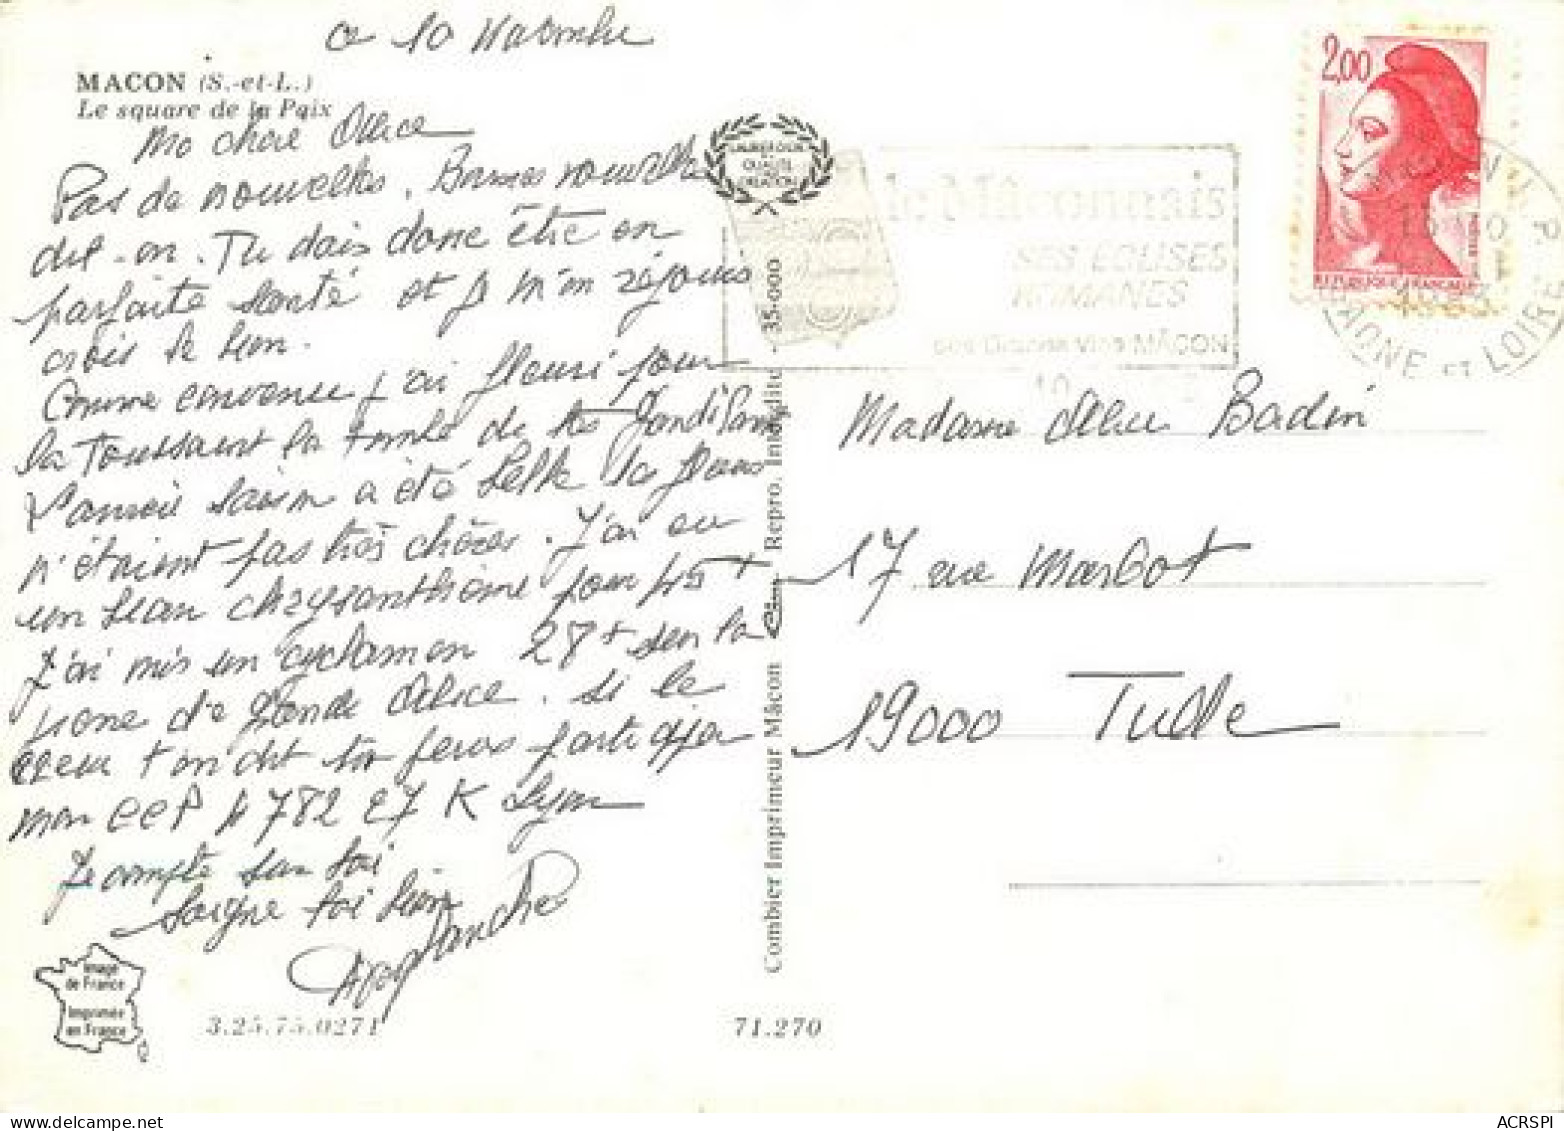 ce 10 Novembre
MACON (S.-et-L.)
Le square de la Paix
Ma chère Alice
Pas de nouvelles. Bonnes nouvelles
dit-on. Tu dois donc être en
parfaite santé et je m'en réjouis
crois le bien.
Comme convenu j'ai fleuri pour
la Toussaint la tombe de tes
saison a été belle les fleurs
n'étaient pas très chères. J'ai eu
un beau chrysanthème pour 45 +
J'ai mis un cyclamen 28+ sur la
de Alice. Si le
coeur t'en dit tu feras
mon CCP N 782 27 K Lyon
Je compte sur toi
Soigne toi bien
QUALITE
le Mâconnais
SES EGLISES
ROMANES
ses Grands Vins MÂCON
2,00
REPUBLIQUE FRANCAISE
SAONE et LOIRE
Madame Alice Badin
17 rue Marbot
19000 Tulle
Combier Imprimeur Mâcon
Repro. Interdite 35-000
Image
de France
Imprimée
en France
3.25.75.0271
71.270
ACRSPI